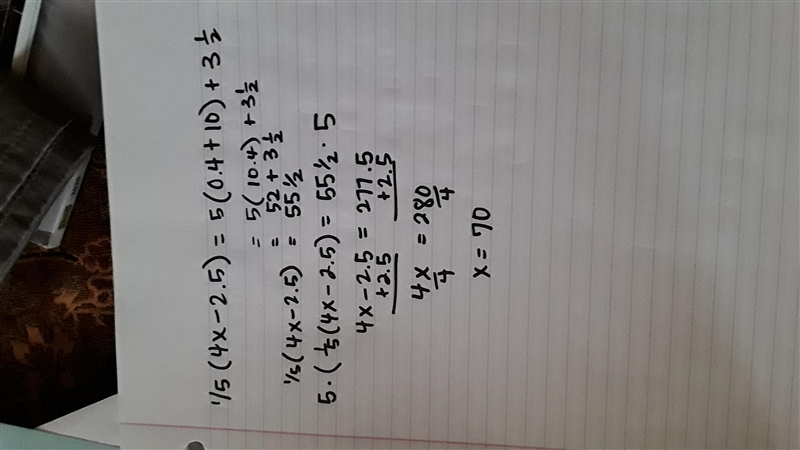 1/5 (4x - 2.5) = 5 (0.4 + 10) + 3 1/2
= 5 (10.4) + 3 1/2
= 52 + 3 1/2
1/5 (4x - 2.5) = 55 1/2
5 · (1/5 (4x - 2.5) = 55 1/2 · 5
4x - 2.5 = 277.5
+2.5 +2.5
4x = 280
4 4
x = 70